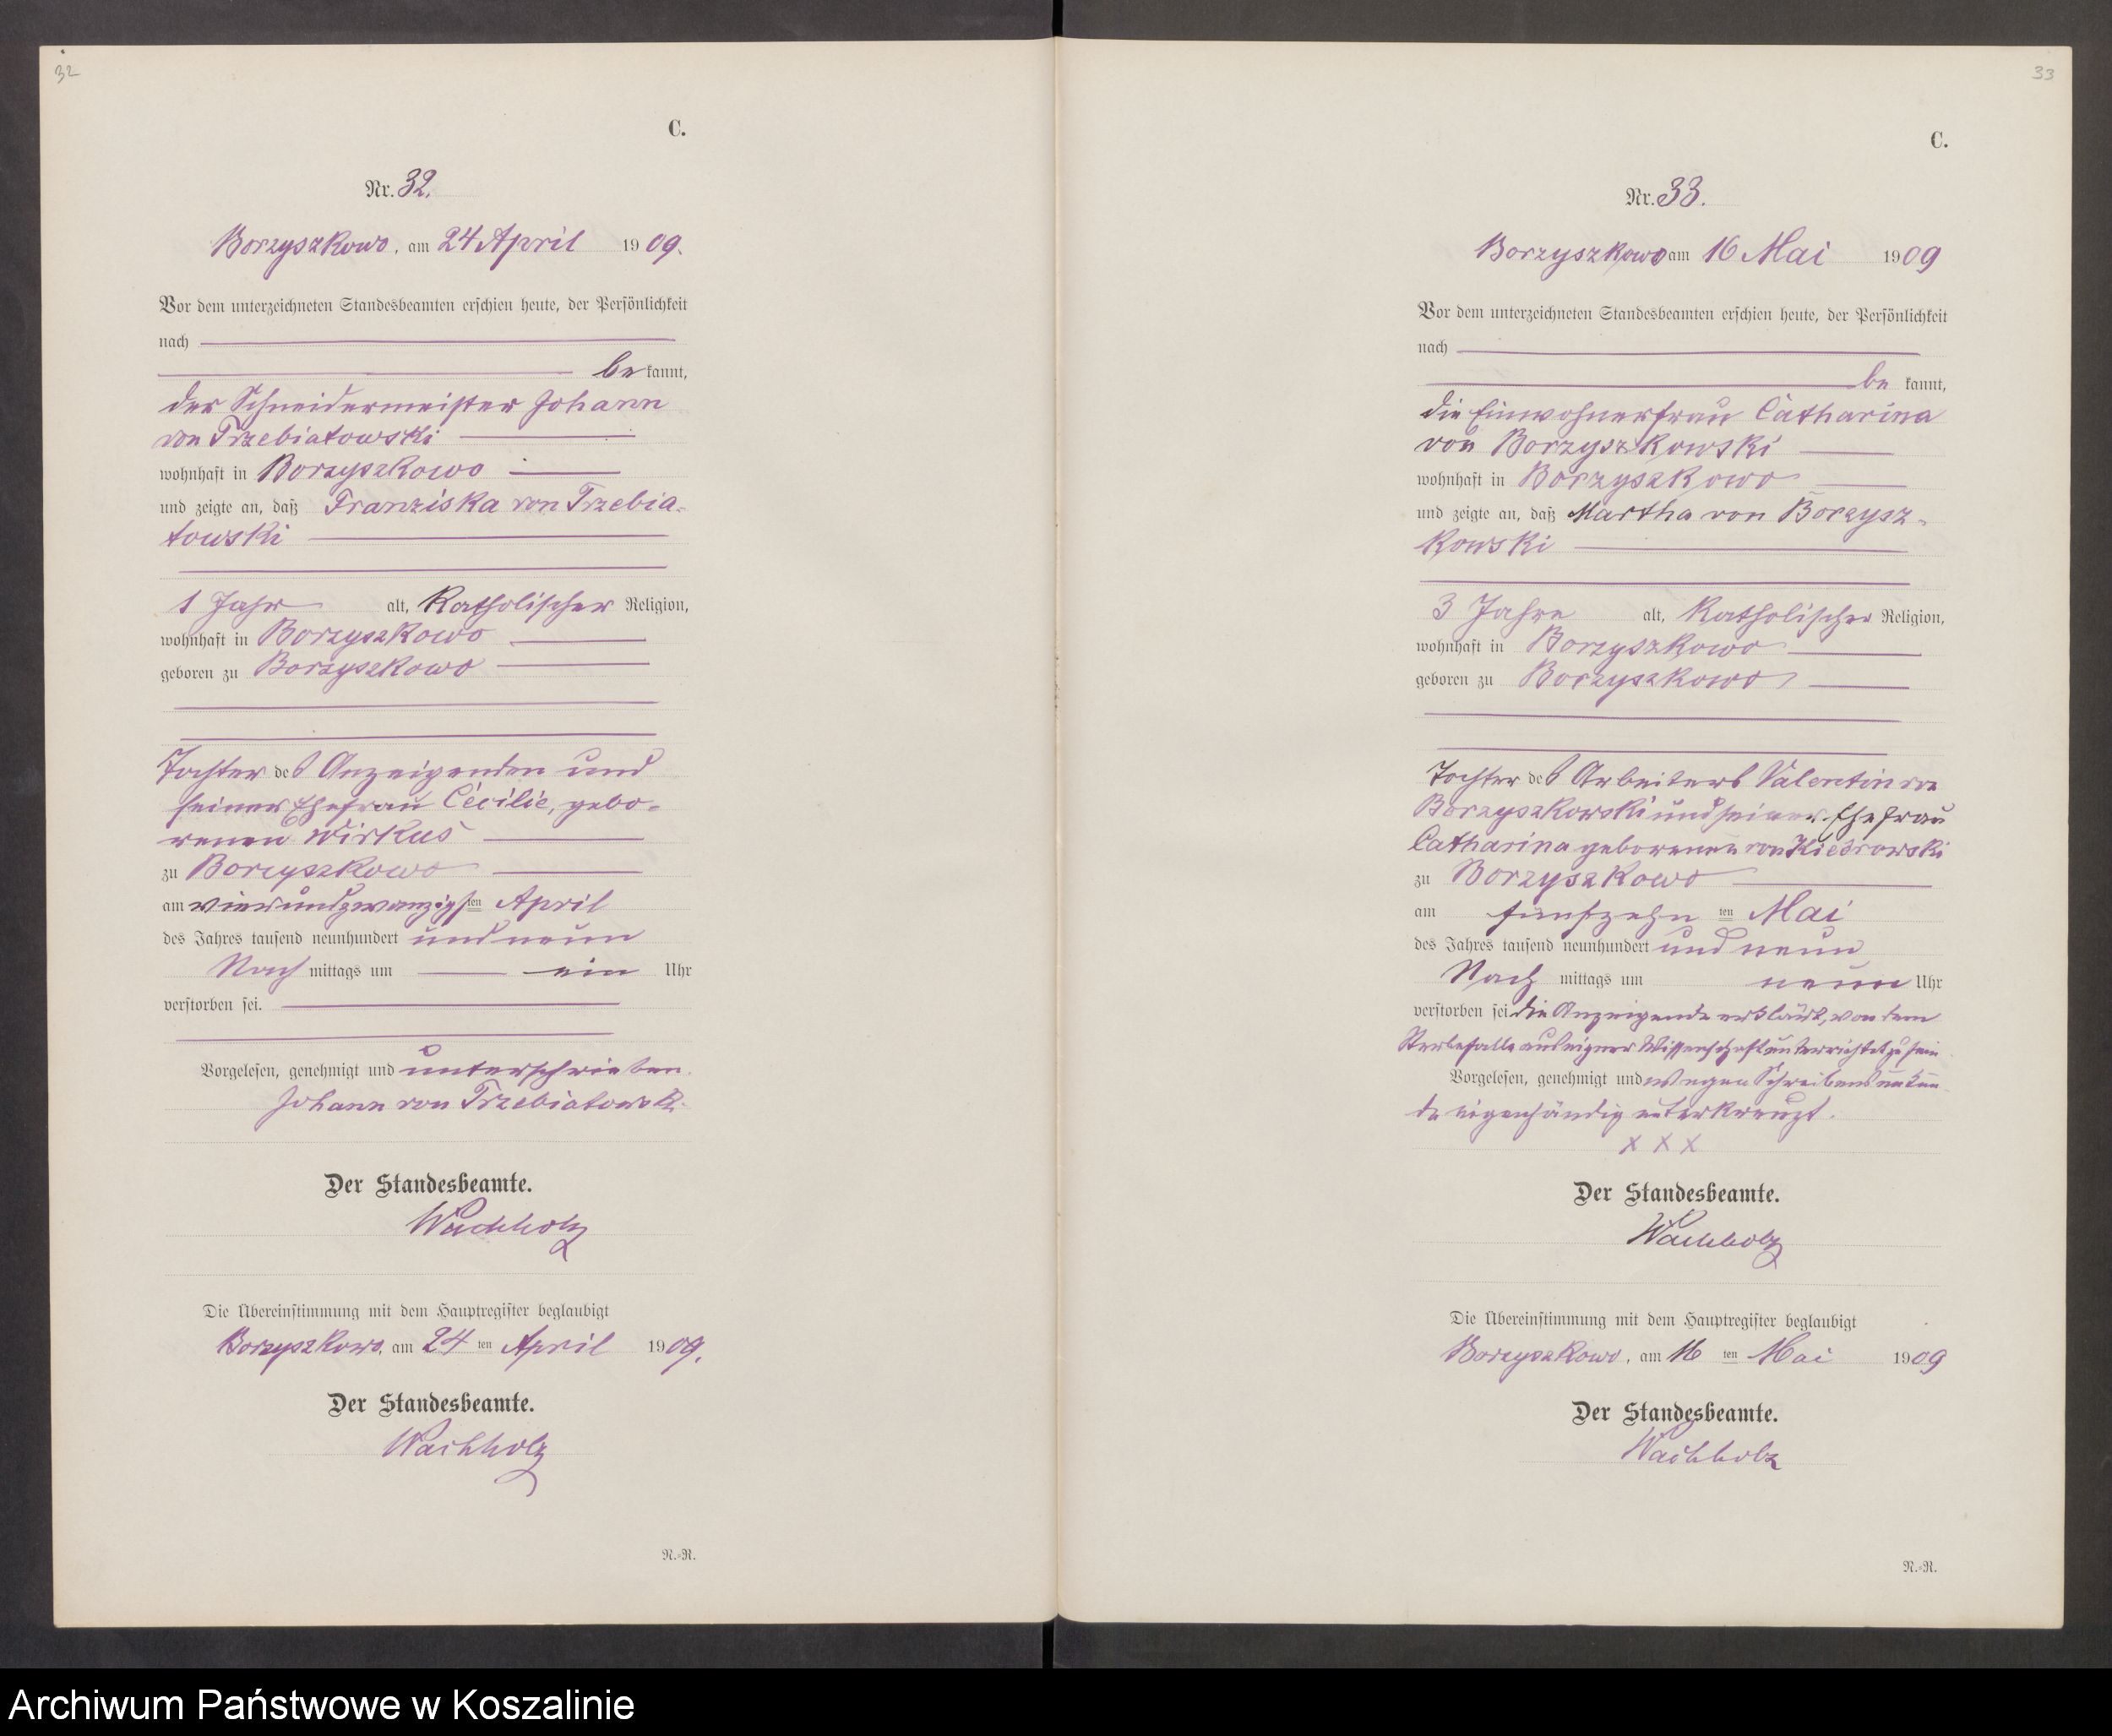 32
C.
Nr. 32.
Borzyszkowo, am 24 April 1909.
Vor dem unterzeichneten Standesbeamten erschien heute, der Persönlichkeit
nach
bekannt,
der Schneidermeister Johann
von Trzebiatowski
wohnhaft in Borzyszkowo
und zeigte an, daß Franziska von Trzebia-
towski
1 Jahr alt, Katholischer Religion,
wohnhaft in Borzyszkowo
geboren zu Borzyszkowo
Tochter des Anzeigenden und
seiner Ehefrau Cécilie, gebo-
renen Wirkus
zu Borzyszkowo
am vierundzwanzigsten April
des Jahres tausend neunhundert und neun
Nachmittags um ein Uhr
verstorben sei.
Vorgelesen, genehmigt und unterschrieben.
Johann von Trzebiatowski
Der Standesbeamte.
Wachholz
Die Übereinstimmung mit dem Hauptregister beglaubigt
Borzyszkowo, am 24 ten April 1909.
Der Standesbeamte.
Wachholz
N.-R.
33
C.
Nr. 33.
Borzyszkowo am 16 Mai 1909
Vor dem unterzeichneten Standesbeamten erschien heute, der Persönlichkeit
nach
be kannt,
die Einwohnerfrau Catharina
von Borzyszkowski
wohnhaft in Borzyszkowo
und zeigte an, daß Martha von Borzysz-
kowski
3 Jahre alt, Katholischer Religion,
wohnhaft in Borzyszkowo
geboren zu Borzyszkowo
Tochter des Arbeiters Valentin von
Borzyszkowski und seiner Ehefrau
Catharina geborenen von Kiedrowski
zu Borzyszkowo
am fünfzehn ten Mai
des Jahres tausend neunhundert und neun
Nach mittags um neun Uhr
verstorben sei die Anzeigende erklärt, von dem
Sterbefalle aus eigner Wissenschaft unterrichtet zu sein
Vorgelesen, genehmigt und wegen Schreibensunkun-
de eigenhändig unterkreuzt.
X X X
Der Standesbeamte.
Wachholz
Die Übereinstimmung mit dem Hauptregister beglaubigt
Borzyszkowo, am 16 ten Mai 1909
Der Standesbeamte.
Wachholz
N.-R.
Archiwum Państwowe w Koszalinie